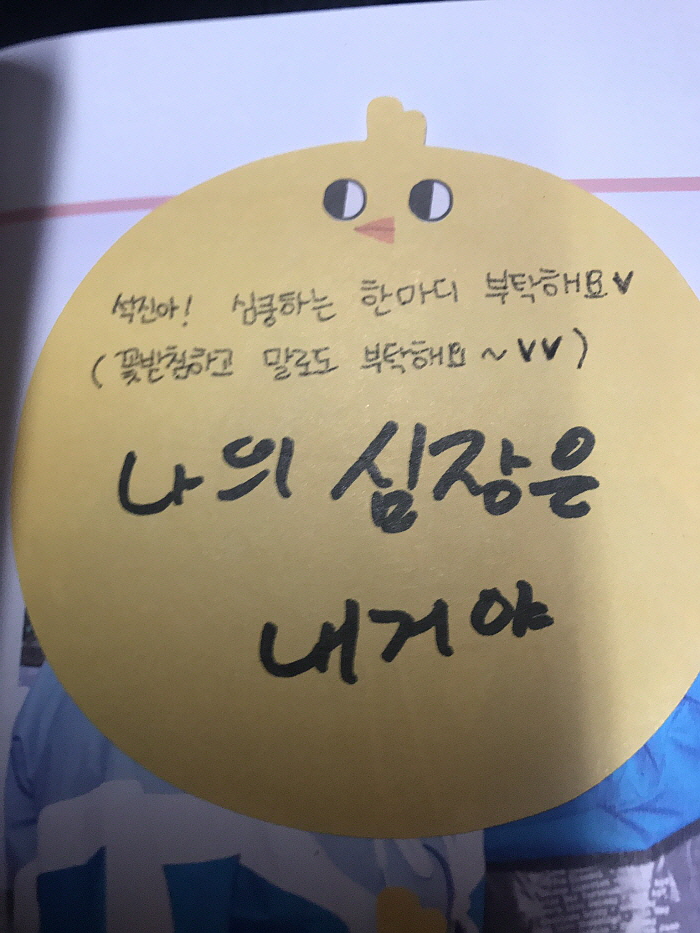 석진아! 심쿵하는 한마디 부탁해요♥
(꽃받침하고 말로도 부탁해요~♥♥)
나의 심장은
내거야